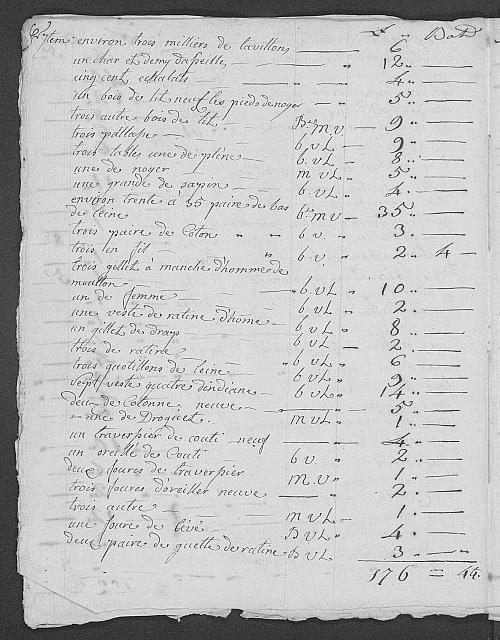 Item environ trois milliers de tavillons — 6 „ —
un char et demy dapeille, — „ 12 „ —
cinq cent echalats — „ 4 „ —
un bois de lit neuf les pieds de noyer — „ 5 „ —
trois autre bois de lit — m v — 9 „ —
trois paillase — b. v L — 9 „ —
trois tables une de plêne — b. v L „ 8 „ —
une de noyer — m v L „ 5 „ —
une grande de sapin — b. v L „ 4 „ —
environ trente à 35 paire de bas
de leine — m v — 35 „ —
trois paire de Coton „ „ b v „ 3 „ —
trois en fil — „ „ b v „ 2 „ 4 —
trois gillet à manche d'homme de
moutton — „ b v L „ 10 „ —
un de femme — b v L „ 2 „ —
une veste de ratine d'home — b v L „ 8 „ —
un gillet de drap b v L — 2 „ —
trois de ratine „ b v L „ 6 „ —
trois quotillons de leine — b v L „ 9 „ —
sept veste quatre d'indiane — b v L „ 14 „ —
deux de Cotonne, neuve — „ 5 „ —
une de Droguet. m v L „ 1 „ —
un traverpier de couti neuf — 4 „ —
un oreille de Couti b v. „ 2 „ —
deux foures de traverpier m. v „ 1 „ —
trois foures d'oreiller neuve — „ 2 „ —
trois autre — m v L — 1 „ —
une foure de lévé — B v L „ 4 „ —
deux paire de guette de ratine B v L 3 „ — „
176 = 4